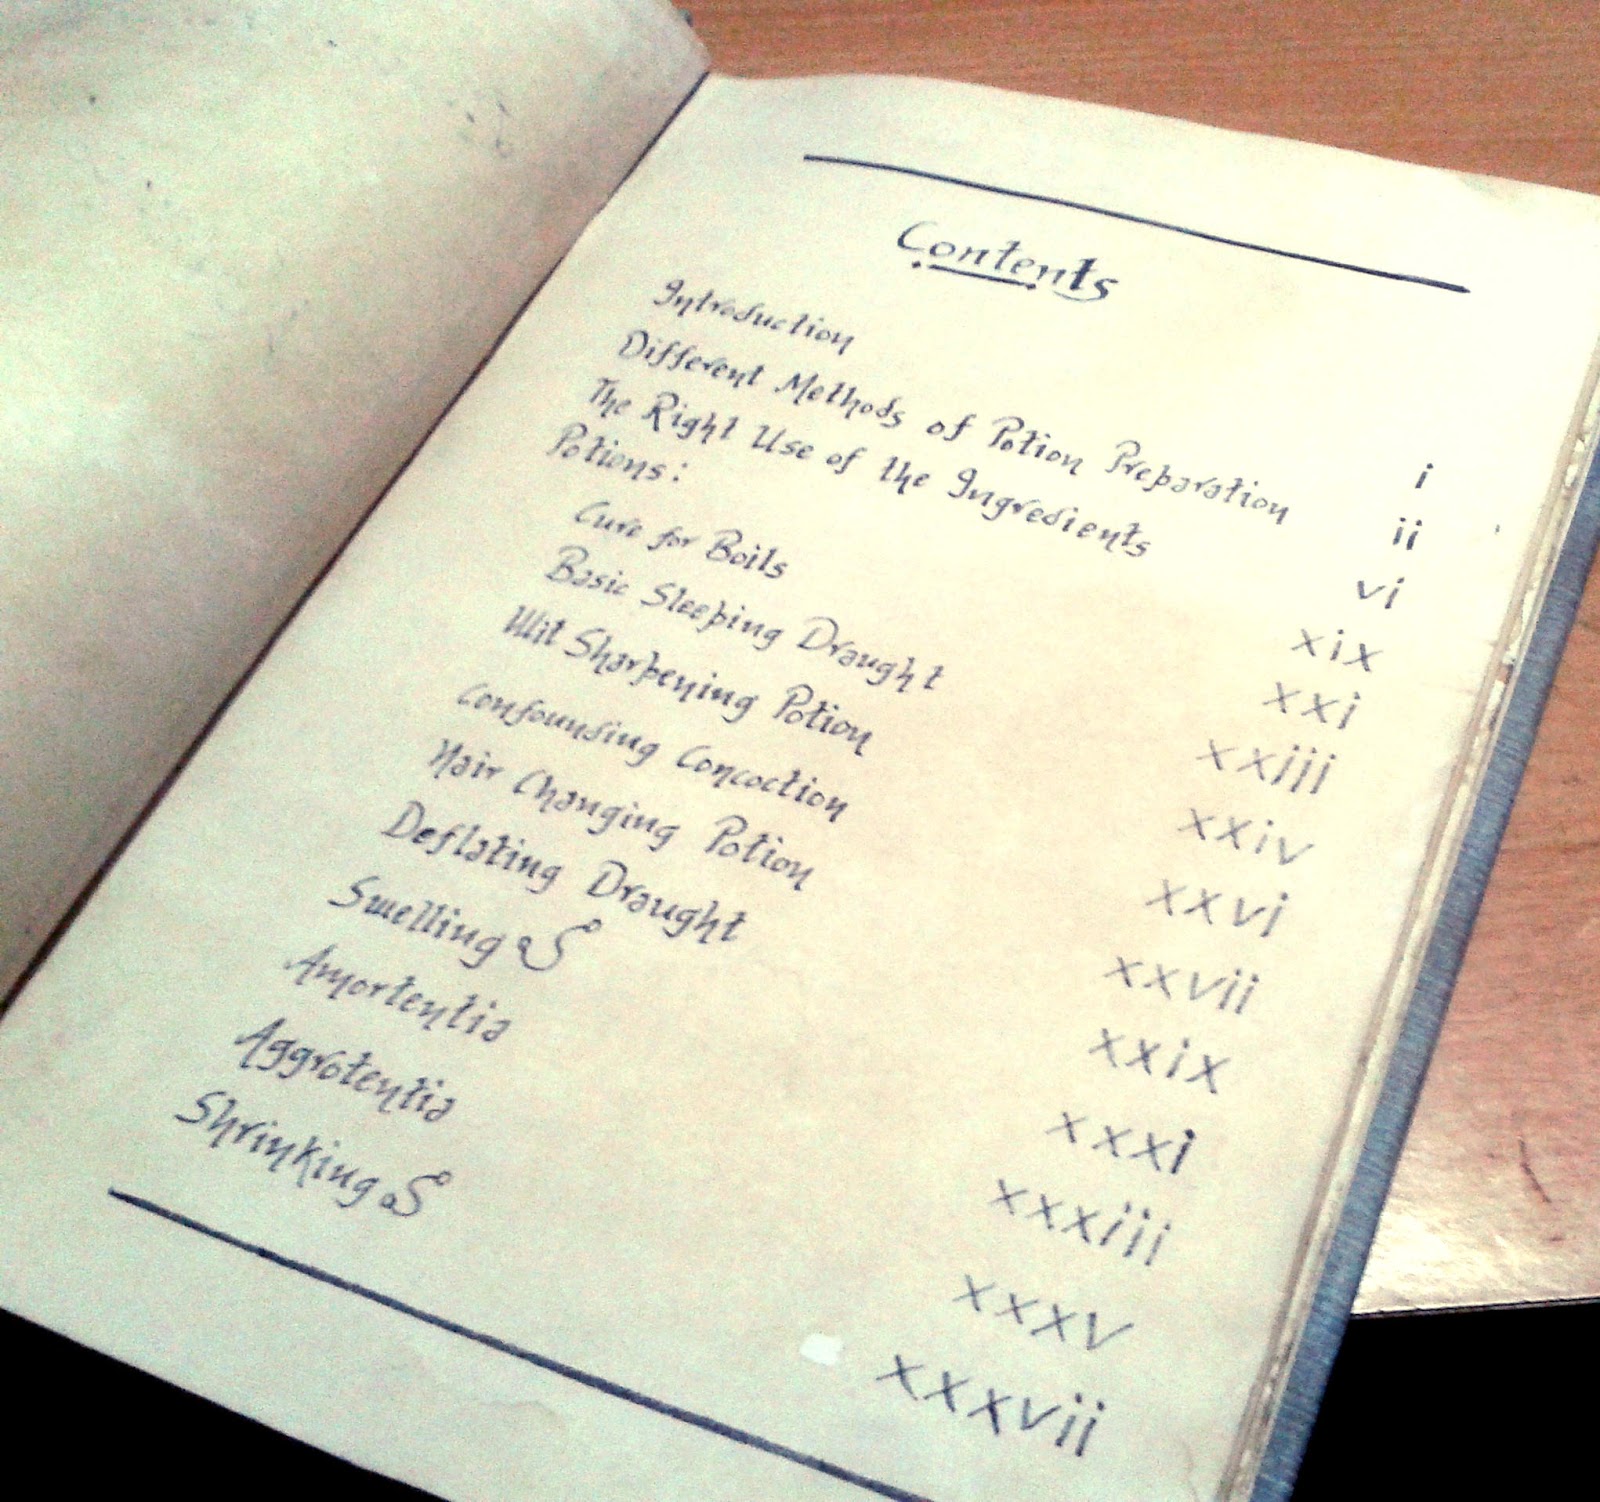 Contents
Introduction i
Different Methods of Potion Preparation ii
The Right Use of the Ingredients vi
Potions: xix
Cure for Boils xxi
Basic Sleeping Draught xxiii
Wit Sharpening Potion xxiv
Confounding Concoction xxvi
Hair Changing Potion xxvii
Deflating Draught xxix
Swelling S xxxi
Amortentia xxxiii
Aggrotentia xxxv
Shrinking S xxxvii